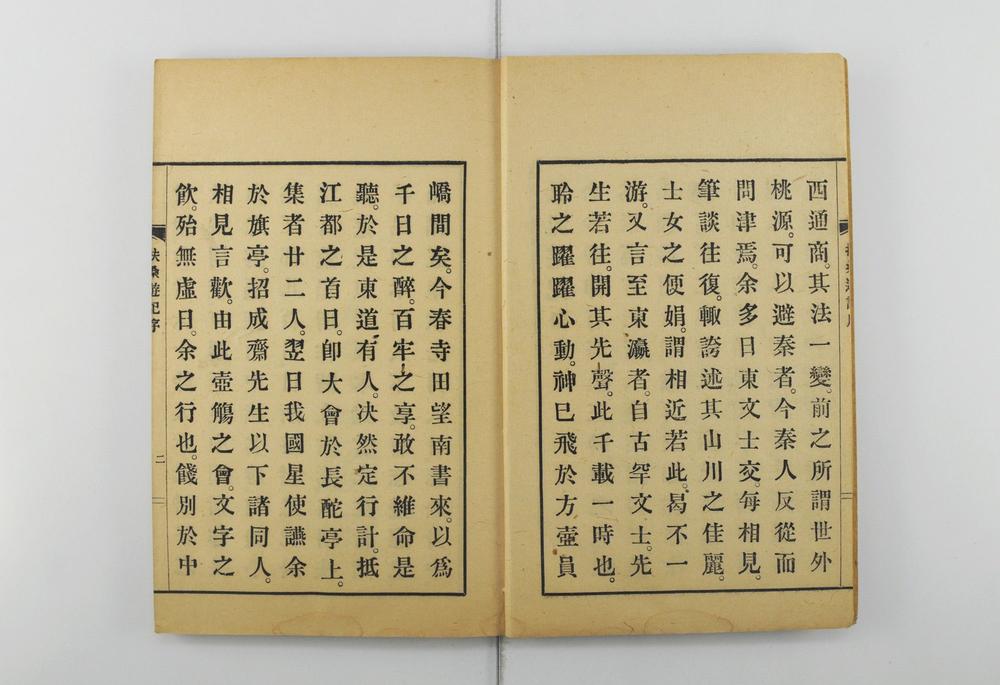 西通商。其法一變。前之所謂世外
桃源。可以避秦者。今秦人反從而
問津焉。余多日東文士交。每相見。
筆談往復。輒誇述其山川之佳麗。
士女之便娟。謂相近若此。曷不一
游。又言至東瀛者。自古罕文士。先
生若往。開其先聲。此千載一時也。
聆之躍躍心動。神已飛於方壺員
嶠間矣。今春寺田望南書來。以爲
千日之醉。百牢之享。敢不維命是
聽。於是東道有人。決然定行計。抵
江都之首日。卽大會於長酡亭上。
集者廿二人。翌日我國星使讌余
於旗亭。招成齋先生以下諸同人。
相見言歡。由此壺觴之會。文字之
飮。殆無虛日。余之行也。餞別於中
扶桑遊記序
二